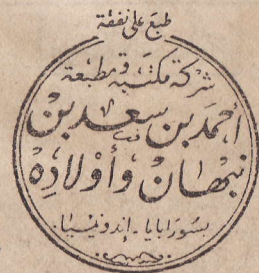 طبع على نفقة
شركة مكتبة ومطبعة
احمد بن سعد بن
نبهان وأولاده
بسورابايا - إندونيسيا